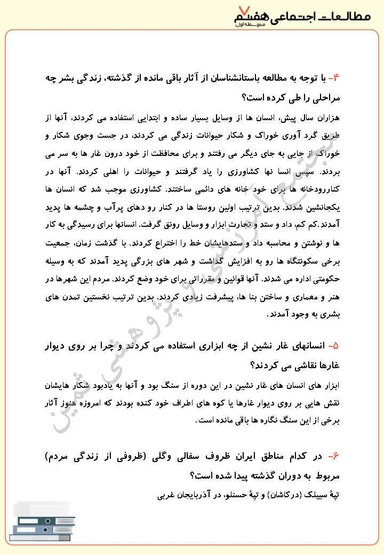 مطالعات اجتماعی هفتم
متوسطه اول
۴- با توجه به مطالعه باستانشناسان از آثار باقی مانده از گذشته، زندگی بشر چه
مراحلی را طی کرده است؟
هزاران سال پیش، انسان ها از وسایل بسیار ساده و ابتدایی استفاده می کردند، آنها از
طریق گرد آوری خوراک و شکار حیوانات زندگی می کردند، در جست وجوی شکار و
خوراک از جایی به جای دیگر می رفتند و برای محافظت از خود درون غار ها به سر می
بردند. سپس انسا نها کشاورزی را یاد گرفتند و حیوانات را اهلی کردند. آنها در
کناررودخانه ها برای خود خانه های دائمی ساختند. کشاورزی موجب شد که انسان ها
یکجانشین شدند. بدین ترتیب اولین روستا ها در کنار رو دهای پرآب و چشمه ها پدید
آمدند.کم کم، داد و ستد و تجارت ابزار و وسایل رونق گرفت. انسانها برای رسیدگی به کار
ها و نوشتن و محاسبه داد و ستدهایشان خط را اختراع کردند. با گذشت زمان، جمعیت
برخی سکونتگاه ها رو به افزایش گذاشت و شهر های بزرگی پدید آمدند که به وسیله
حکومتی اداره می شدند. آنها قوانین و مقرراتی برای خود وضع کردند. مردم این شهرها در
هنر و معماری و ساختن بنا ها، پیشرفت زیادی کردند. بدین ترتیب نخستین تمدن های
بشری به وجود آمدند.
۵- انسانهای غار نشین از چه ابزاری استفاده می کردند و چرا بر روی دیوار
غارها نقاشی می کردند؟
ابزار های انسان های غار نشین در این دوره از سنگ بود و آنها به یادبود شکار هایشان
نقش هایی بر روی دیوار غارها یا کوه های اطراف خود کنده بودند که امروزه هنوز آثار
برخی از این سنگ نگاره ها باقی مانده است.
۶- در کدام مناطق ایران ظروف سفالی وگلی (ظروفی از زندگی مردم)
مربوط به دوران گذشته پیدا شده است؟
تپهٔ سیلک (درکاشان) و تپهٔ حسنلو، در آذربایجان غربی